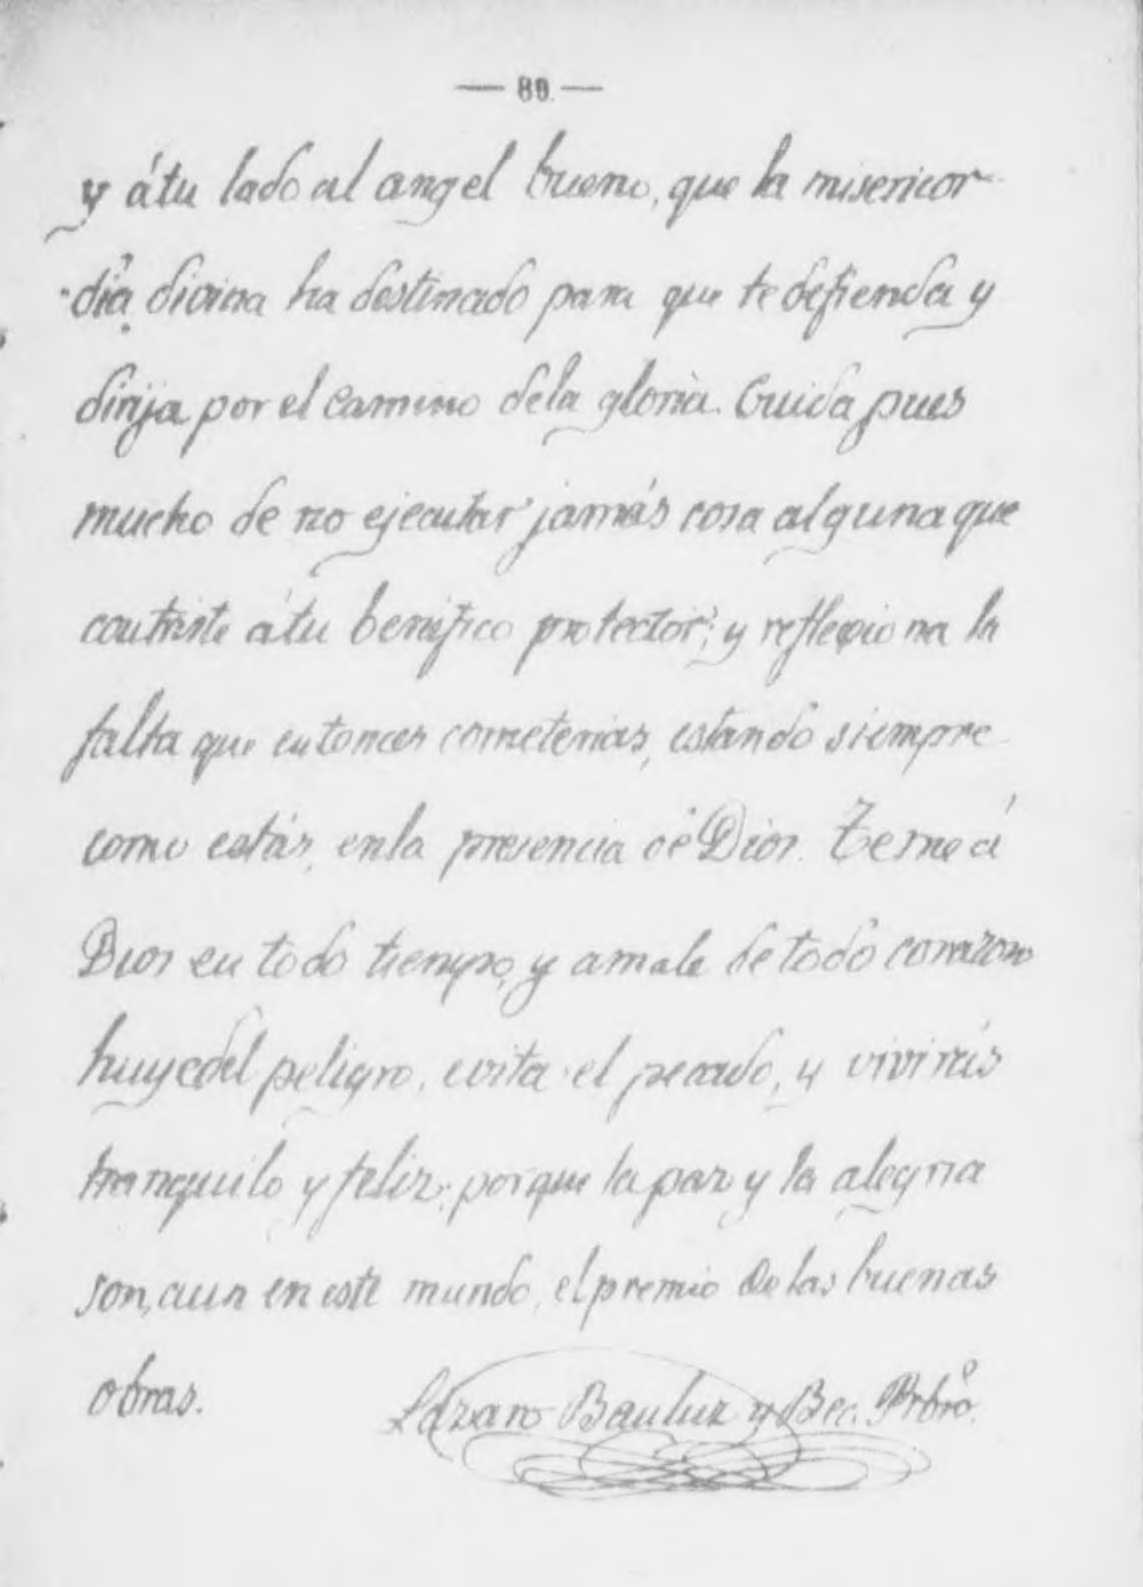 — 80 —
y á tu lado al angel bueno, que la misericor-
dia divina ha destinado para que te defienda y
dirija por el camino de la gloria. Cuida pues
mucho de no ejecutar jamás cosa alguna que
contriste á tu benéfico protector; y reflexiona la
falta que entonces cometerias, estando siempre
como estás, en la presencia de Dios. Teme á
Dios en todo tiempo, y amale de todo corazon
huye del peligro, evita el pecado, y vivirás
tranquilo y feliz; porque la paz y la alegria
son, aun en este mundo, el premio de las buenas
obras.
Lázaro Bauluz y Bec. Prbro.